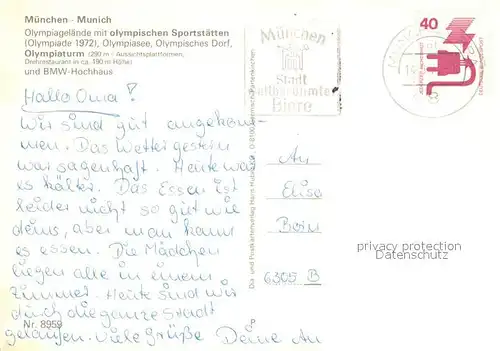 München - Munich
Olympiagelände mit olympischen Sportstätten
(Olympiade 1972), Olympiasee, Olympisches Dorf,
Olympiaturm (290 m: Aussichtsplattformen,
Drehrestaurant in ca. 190 m Höhe)
und BMW-Hochhaus
Hallo Oma!
Wir sind gut angekom-
men. Das Wetter gestern
war sagenhaft. Heute war
es kälter. Das Essen ist
leider nicht so gut wie
deins, aber man kann
es essen. Die Mädchen
liegen alle in einem
Zimmer. Heute sind wir
durch die ganze Stadt
gelaufen. Viele Grüße Deine
Nr. 8959
München
Stadt
weltberühmter
Biere
40
An
Elise
6305 B
privacy protection
Datenschutz